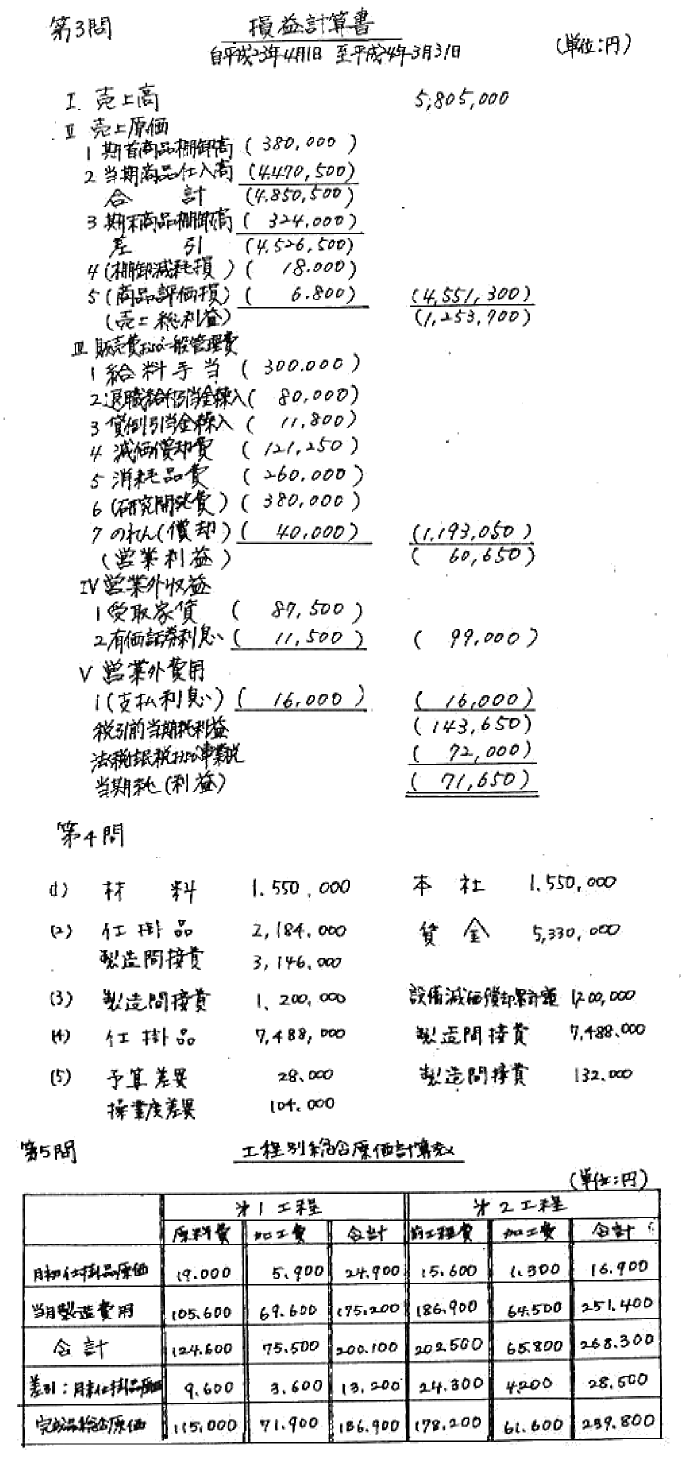 第3問
損益計算書
自平成23年4月1日 至平成24年3月31日 (単位:円)
I 売上高 5,805,000
II 売上原価
1 期首商品棚卸高 (380,000)
2 当期商品仕入高 (4,470,500)
合計 (4,850,500)
3 期末商品棚卸高 (324,000)
差引 (4,526,500)
4 (棚卸減耗損) (18,000)
5 (商品評価損) (6,800) (4,551,300)
(売上総利益) (1,253,700)
III 販売費および一般管理費
1 給料手当 (300,000)
2 退職給付引当金繰入 (80,000)
3 貸倒引当金繰入 (11,800)
4 減価償却費 (121,250)
5 消耗品費 (260,000)
6 (研究開発費) (380,000)
7 のれん(償却) (40,000) (1,193,050)
(営業利益) (60,650)
IV 営業外収益
1 受取家賃 (87,500)
2 有価証券利息 (11,500) (99,000)
V 営業外費用
1 (支払利息) (16,000) (16,000)
税引前当期純利益 (143,650)
法人税住民税および事業税 (72,000)
当期純(利益) (71,650)
第4問
(1) 材料 1,550,000 本社 1,550,000
(2) 仕掛品 2,184,000 賃金 5,330,000
製造間接費 3,146,000
(3) 製造間接費 1,200,000 設備減価償却累計額 1,200,000
(4) 仕掛品 7,488,000 製造間接費 7,488,000
(5) 予算差異 28,000 製造間接費 132,000
操業度差異 104,000
第5問 工程別総合原価計算表
(単位:円)
第1工程 第2工程
原料費 加工費 合計 前工程費 加工費 合計
月初仕掛品原価 19.000 5.900 24.900 15.600 1.300 16.900
当月製造費用 105.600 69.600 175.200 186.900 64.500 251.400
合計 124.600 75.500 200.100 202.500 65.800 268.300
差引:月末仕掛品原価 9.600 3.600 13.200 24.300 4200 28.500
完成品総合原価 115.000 71.900 186.900 178.200 61.600 239.800